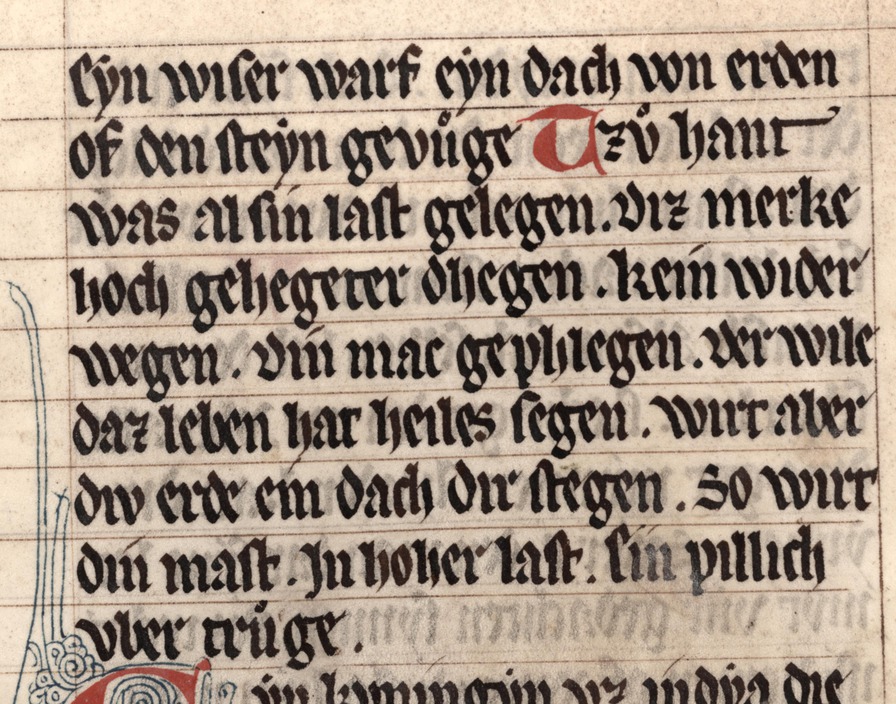 Eyn wiser warf eyn dach von erden
of den steyn gevůge Tzů hant
was al sin last gelegen. diz merke
hoch gehegeter dhegen. kein wider
wegen. din mac gephlegen. der wile
daz leben hat heiles segen. wirt aber
div erde ein dach dir stegen. So wirt
din mast. In hoher last. sin pillich
vber trůge.
yn kvningyn vz indya die